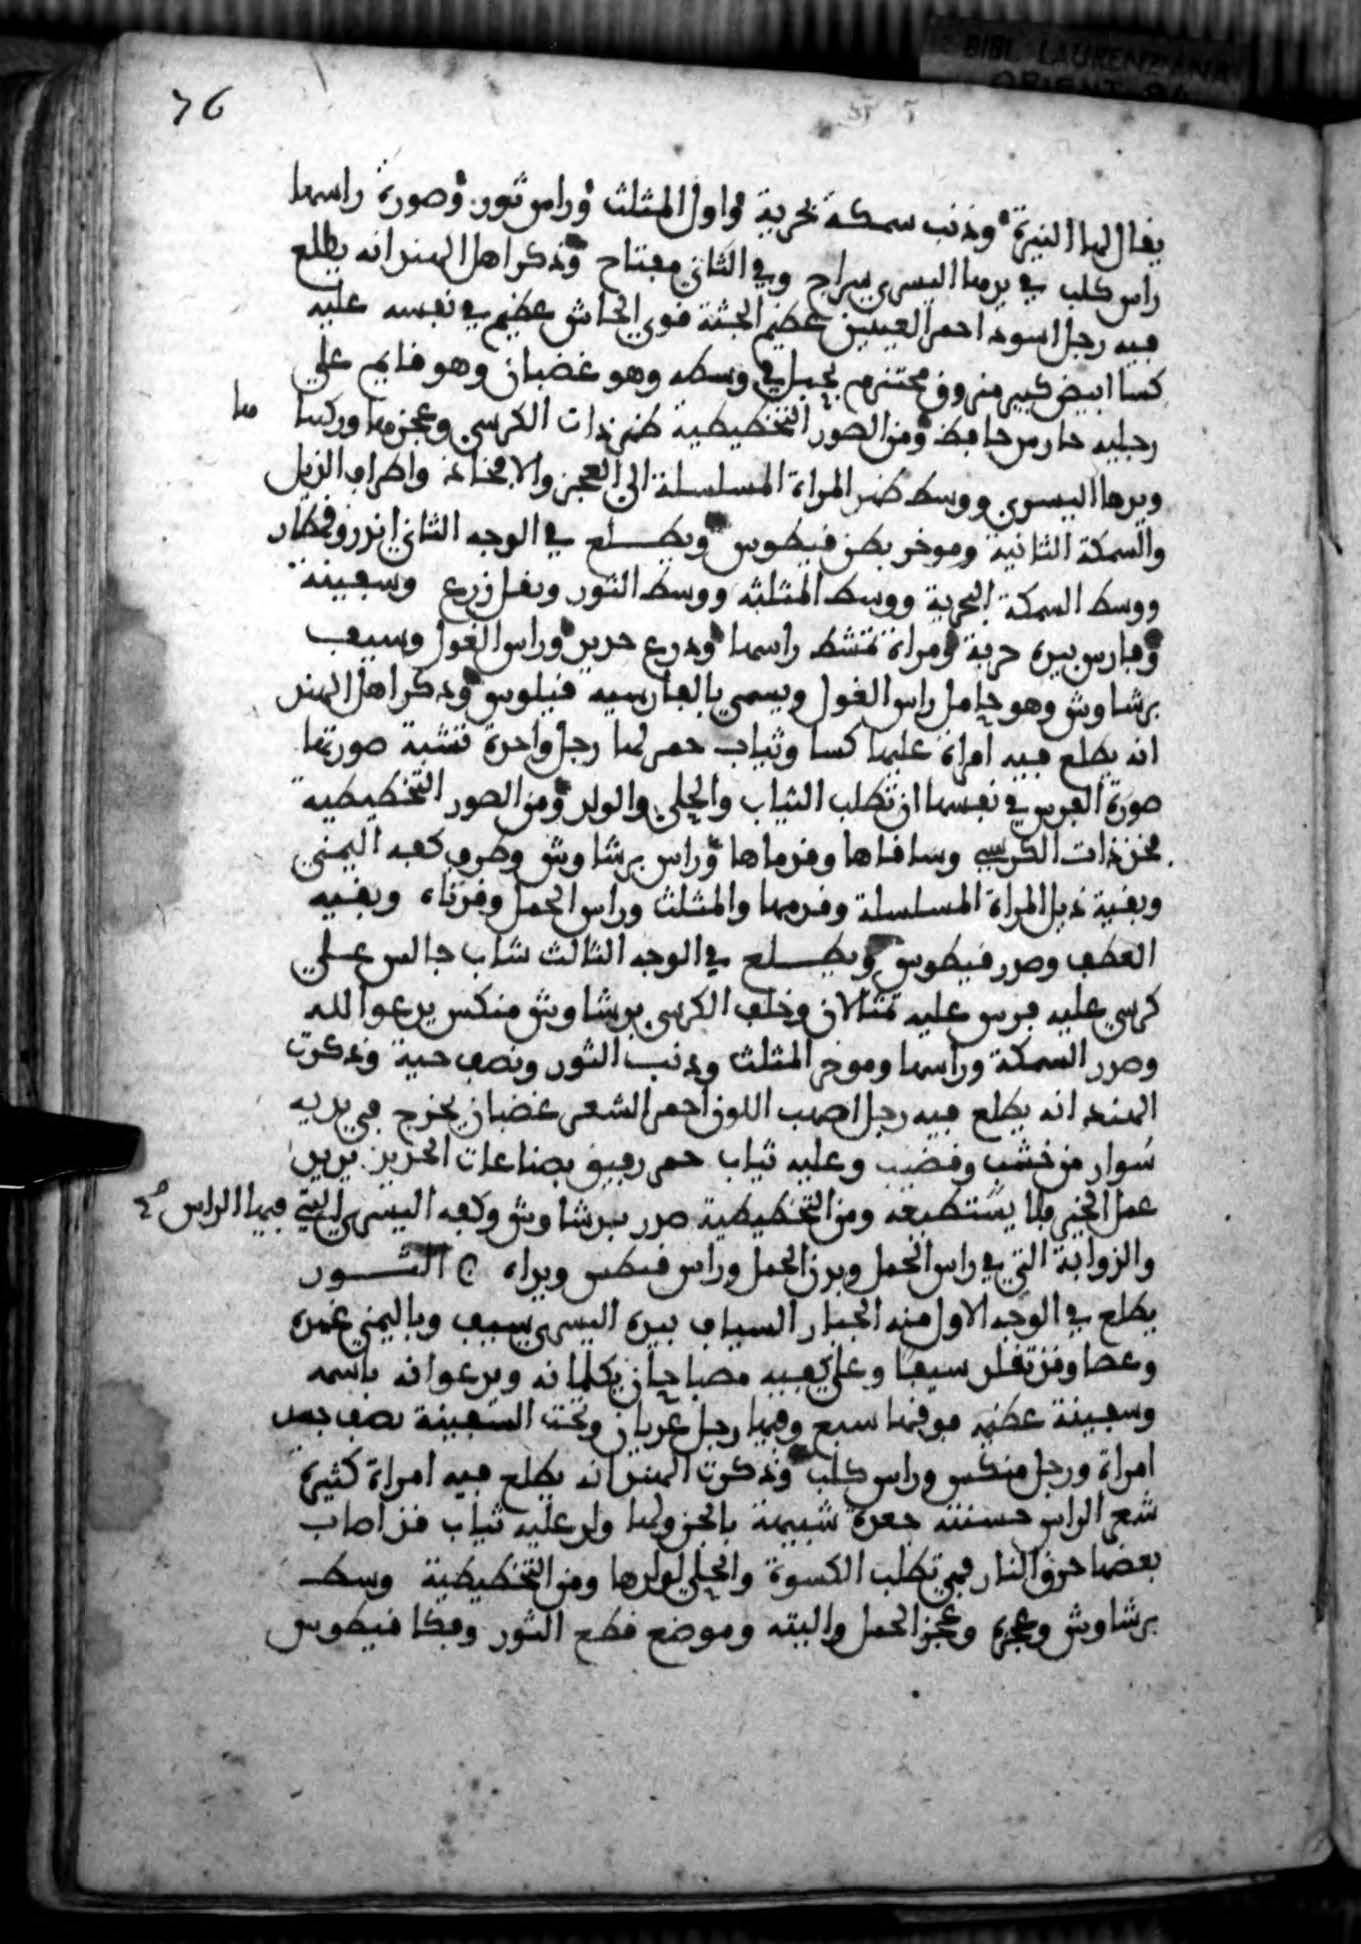 BIBL. LAURENZIANA
ORIENT.
76
يقال لها النيرة وذنب سمكة بحرية واول المثلث وراس ثور وصورة راسها
راس كلب في يدها اليسرى سراج وفي الثاني مفتاح وذكر اهل الهند انه يطلع
فيه رجل اسود احمر العينين عظيم الجثة قوي الجاش عظيم في نفسه عليه
كسا ابيض كبير محتزم بحبل في وسطه وهو غضبان وهو قايم على
رجليه حارس حافظ ومن الصور التخطيطية ظهر ذات الكرسي وعجزها وركبتا
ها
ويدها اليسرى ووسط ظهر المراة المسلسلة الى العجز والا واطراف الذيل
والسمكة الثانية وموخر بطن قيطوس ويطلع في الوجه الثاني
ووسط السمكة البحرية ووسط المثلثه ووسط الثور وسفينة
وفارس بيده حربة وامراة تمشط راسها ودرع حديد وراس الغول وسيف
برشاوش وهو حامل راس الغول ويسمى بالفارسيه فيلوس وذكر اهل الهند
انه يطلع فيه امراة عليها كسا وثياب حمر لها رجل واحدة تشبه صورتها
صورة الفرس في نفسها ان تطلب الثياب والحلي والولد ومن الصور التخطيطية
فخذ ذات الكرسي وساقاها وقدماها وراس برشاوش وطرف كفه اليمنى
وبقية ذيل المراة المسلسلة وقدمها والمثلث وراس الحمل وقرناه وبقيه
العطف وصدر قيطوس ويطلع في الوجه الثالث شاب جالس على
كرسي عليه فرس عليه تمثالان وخلف الكرسي برشاوش منكس يدعوا لله
وصدر السمكة وراسها وموخر المثلث وذنب الثور ونصف حية وذكرت
الهند انه يطلع فيه رجل اصهب اللون احمر الشعر غضبان يخرج في يديه
سوار من خشب وقضيب وعليه ثياب حمر رفيق بصناعات الحديد يريد
عمل الخير فلا يستطيعه ومن التخطيطية صدر برشاوش وكفه اليسرى التي فيها الراس
والزوابة التي في راس الحمل وبدن الحمل وراس قيطس ويداه الثور
يطلع في الوجه الاول منه الجبار السياف بيده اليسرى سيف وباليمنى غمده
وعصا وقد تقلد سيفا وعلى كفيه مصباحان يكلمانه ويدعوانه باسمه
وسفينة عظيمه فوقها سبع وفيها رجل عريان وتحت السفينة نصف جسد
امراة ورجل منكس وراس كلب وذكرت الهند انه يطلع فيه امراة كثيرة
شعر الراس حسنته جعدة شبيهة ولها ولد عليه ثياب قد اصاب
بعضها حرق النار فهي تطلب الكسوة والحلي لولدها ومن التخطيطية وسط
برشاوش وعجزه وعجز الحمل واليته وموضع قطع الثور وقفا قيطوس